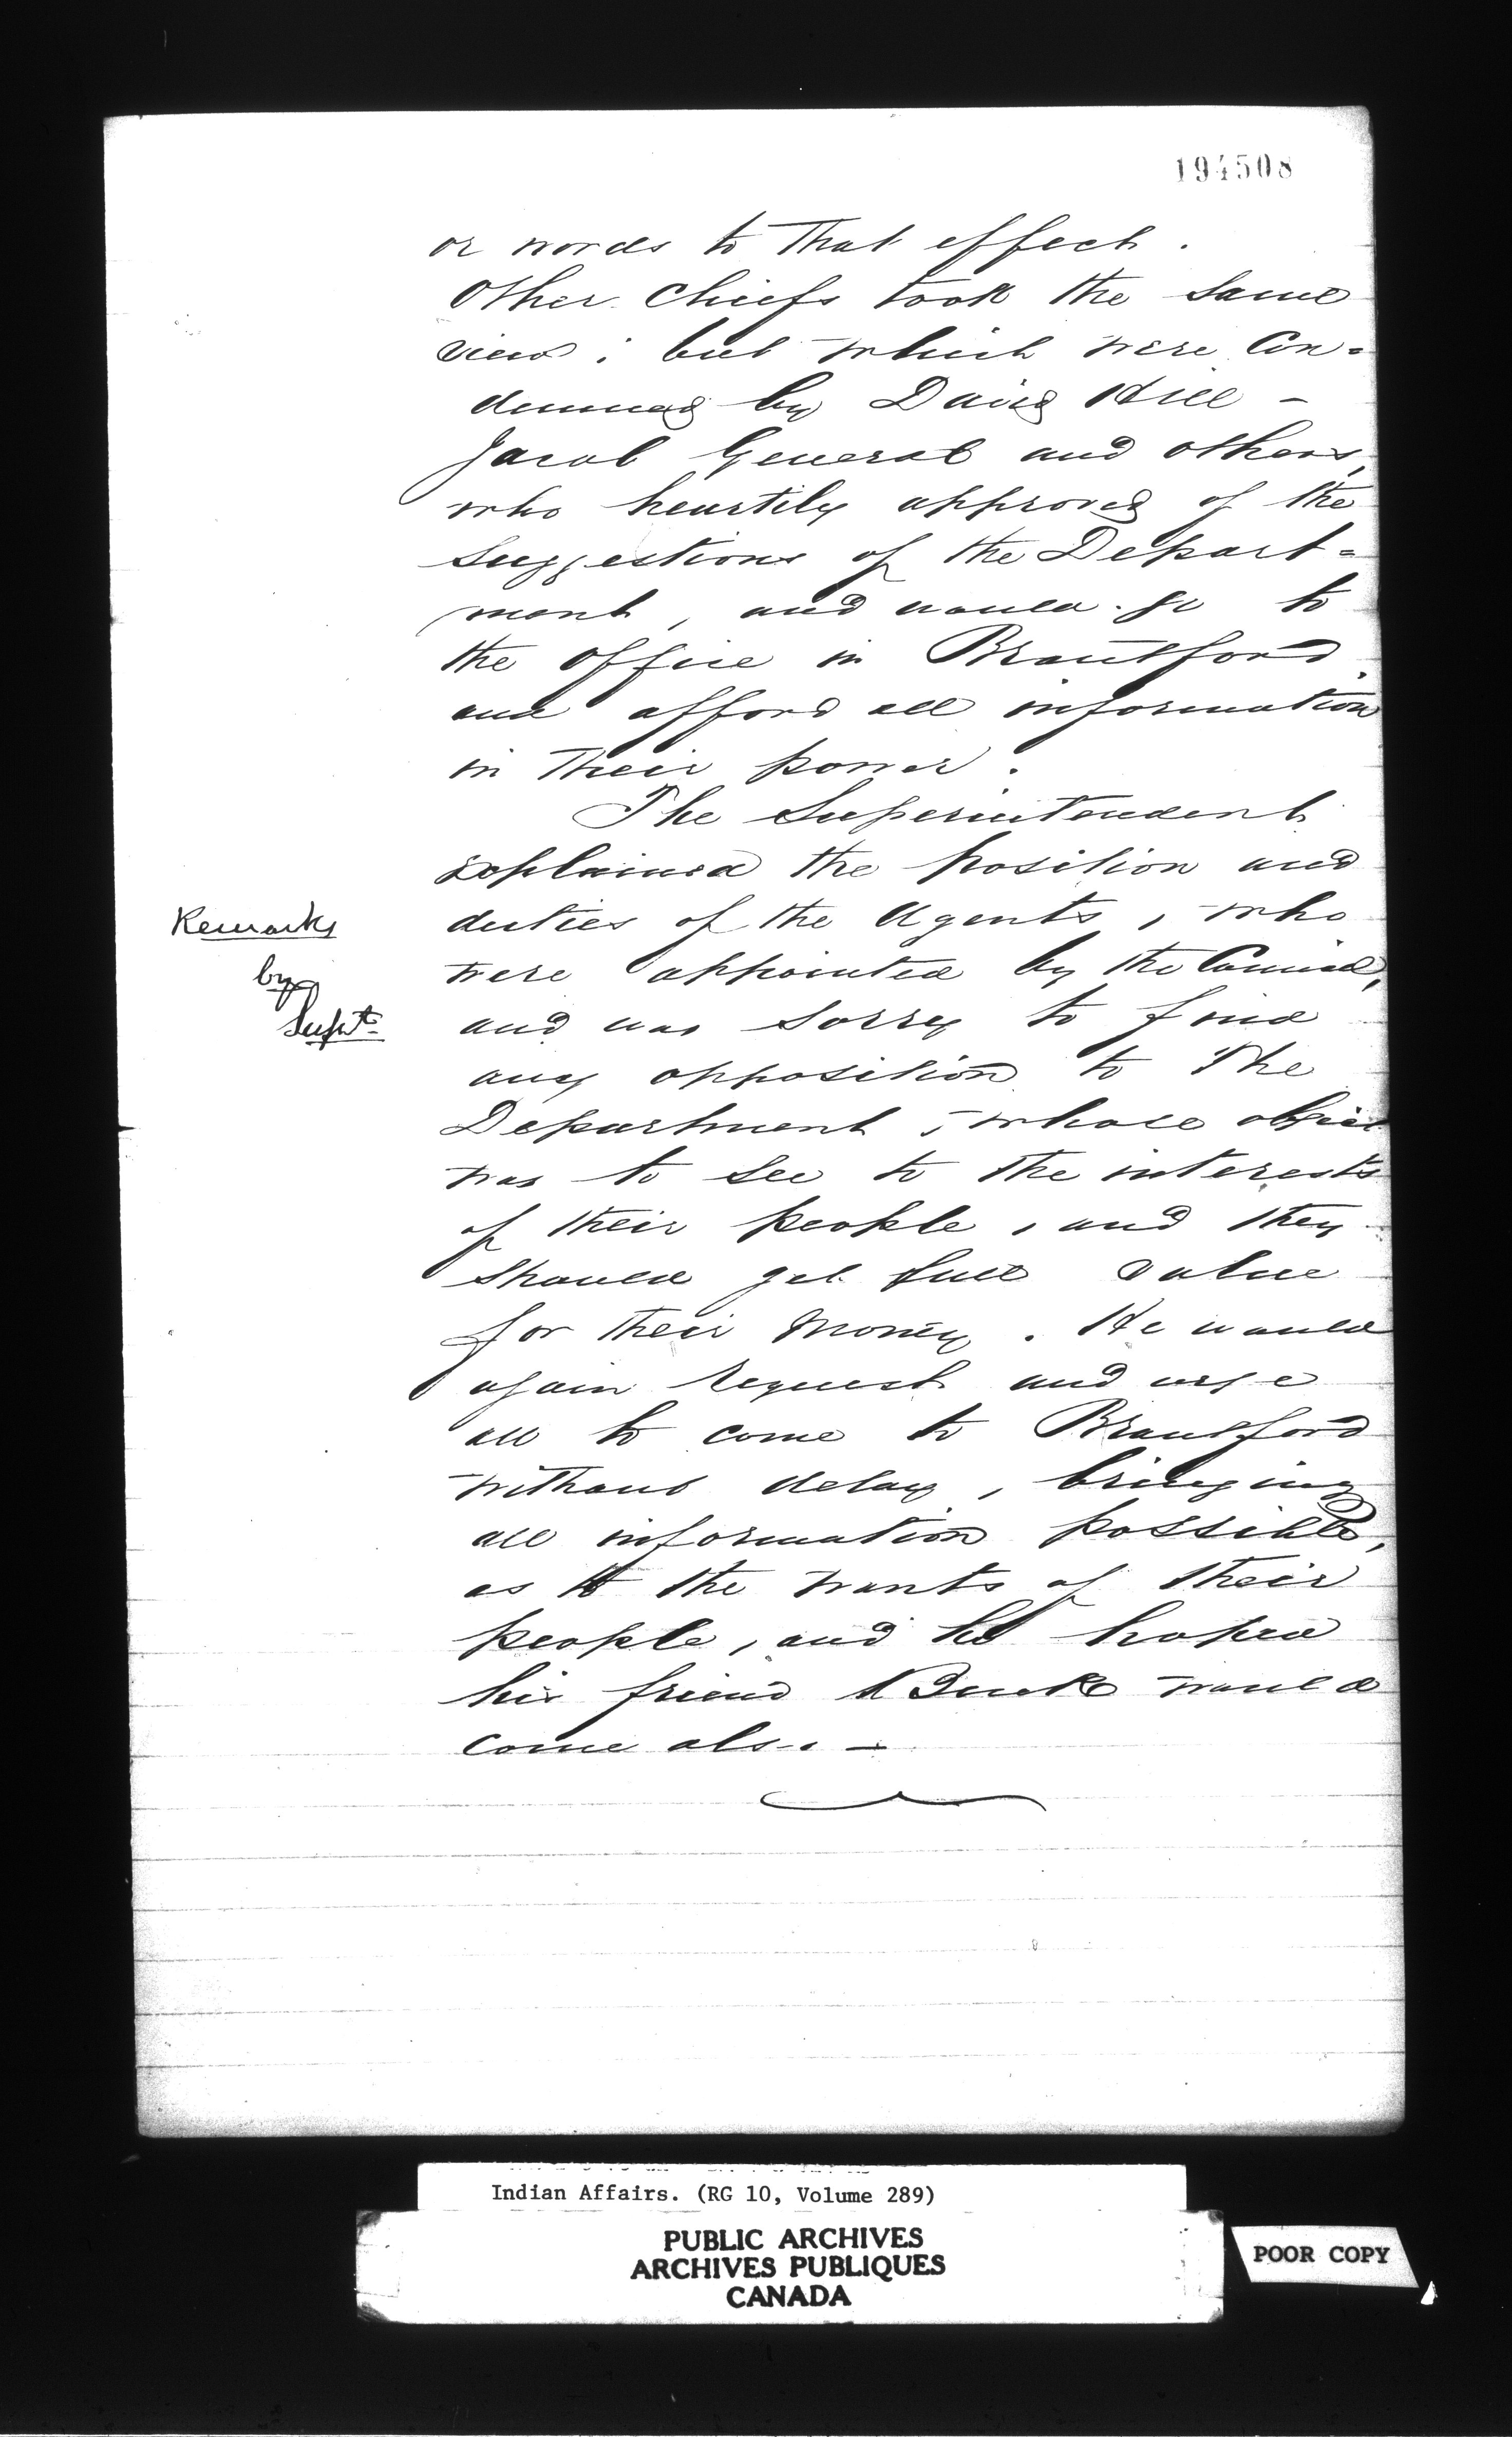 194508
or words to that effect.
Other Chiefs took the same
view; but which were Con=
demned by David Hill –
Jacob General and others,
who heartily approved of the
suggestions of the Depart=
ment, and would go to
the office in Brantford,
and afford all information
in their power.
The Superintendent
explained the position and
duties of the Agents, who
Remarks
by
Supt.
were appointed by the Council,
and was sorry to find
any opposition to the
Department, whose object
was to see to the interests
of their people, and they
should get full value
for their money. He would
again request and urge
all to come to Brantford
without delay, bringing
all information possible,
as to the wants of their
people, and he hoped
his friend Buck would
come also. –
Indian Affairs. (RG 10, Volume 289)
PUBLIC ARCHIVES
ARCHIVES PUBLIQUES
CANADA
POOR COPY